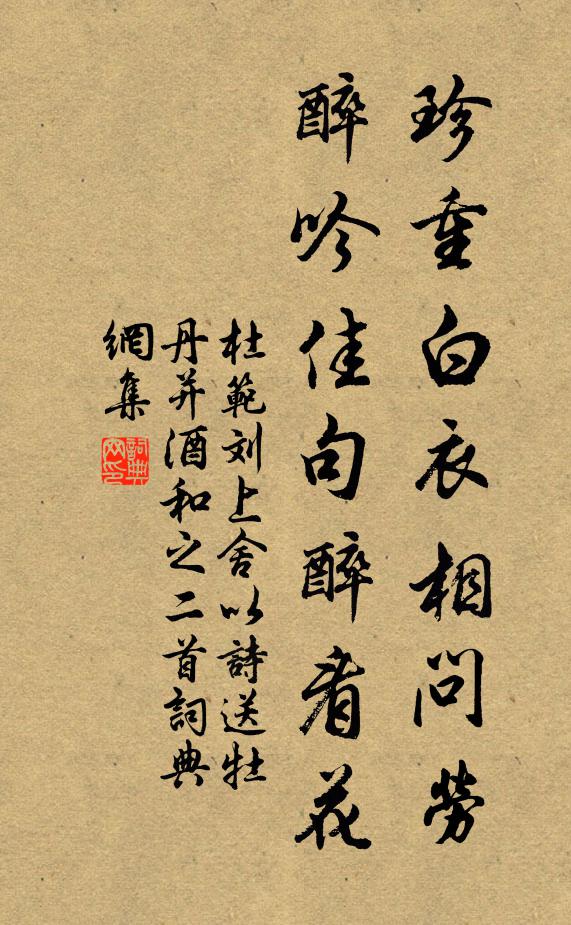 珍重白衣相問勞
醉吟佳句醉看花
杜範刘上舍以詩送牡
丹并酒和之二首詞典
網集
詞典
网印